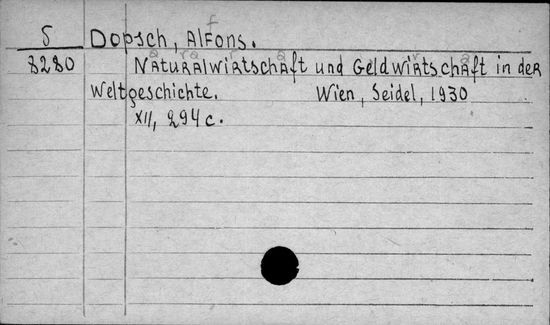 S Dopsch, Alfons.
8280 Naturalwirtschaft und Geldwirtschaft in der
Weltgeschichte. Wien, Seidel, 1930
XII, 294 c.